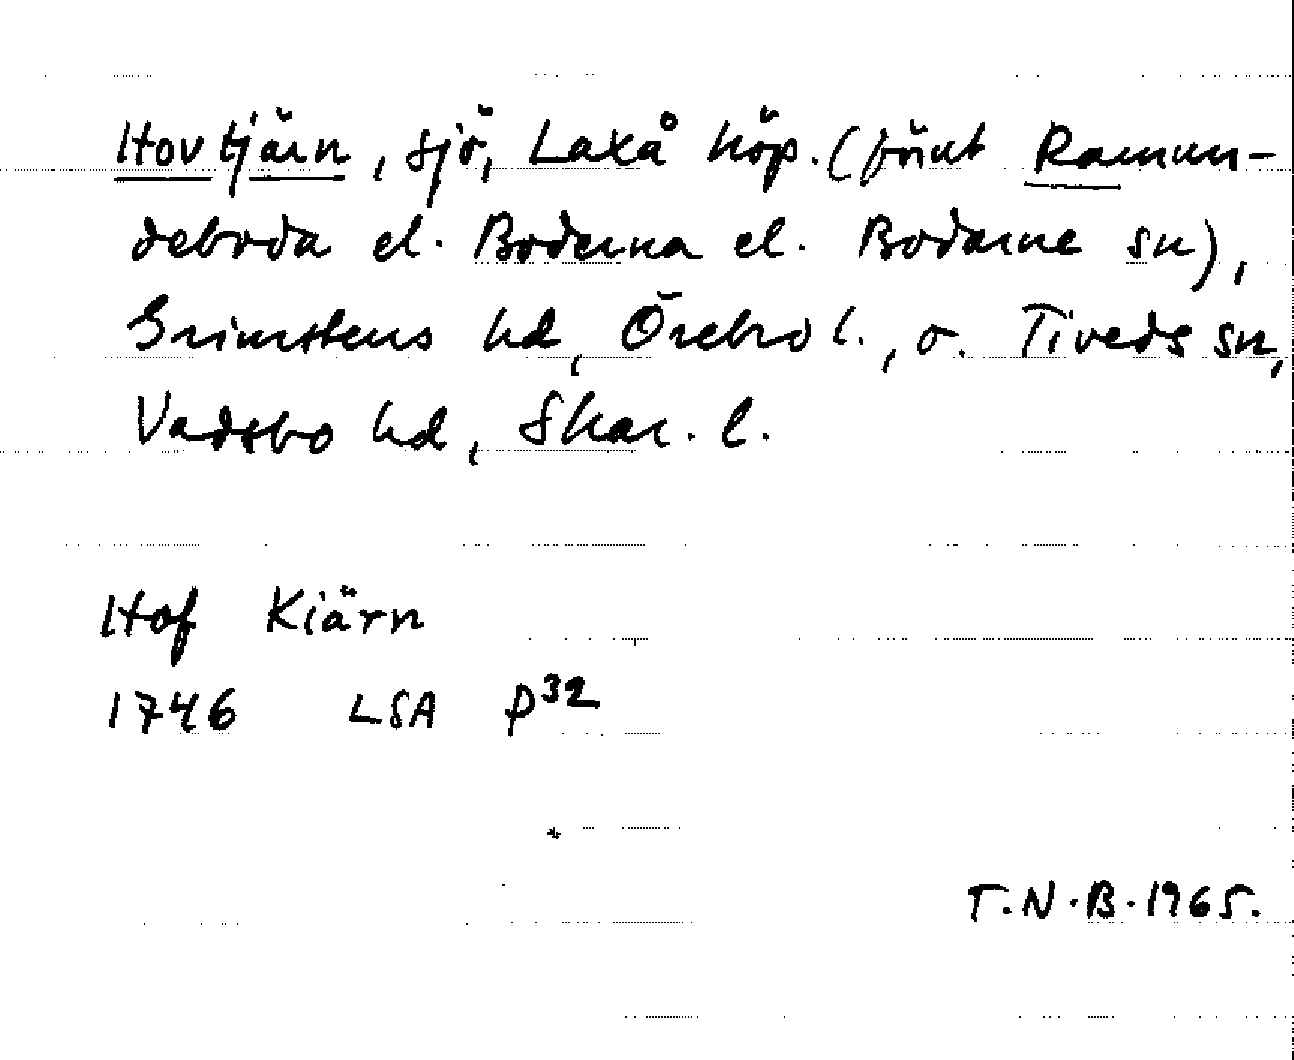 Hovtjärn, sjö, Laxå köp. (förut Ramun-
deboda el. Boderna el. Bodarne sn),
Grimstens hd, Örebro l., o. Tiveds sn,
Vadsbo hd, Skar. l.
Hof Kiärn
1746 LSA P32
T.N.B. 1965.